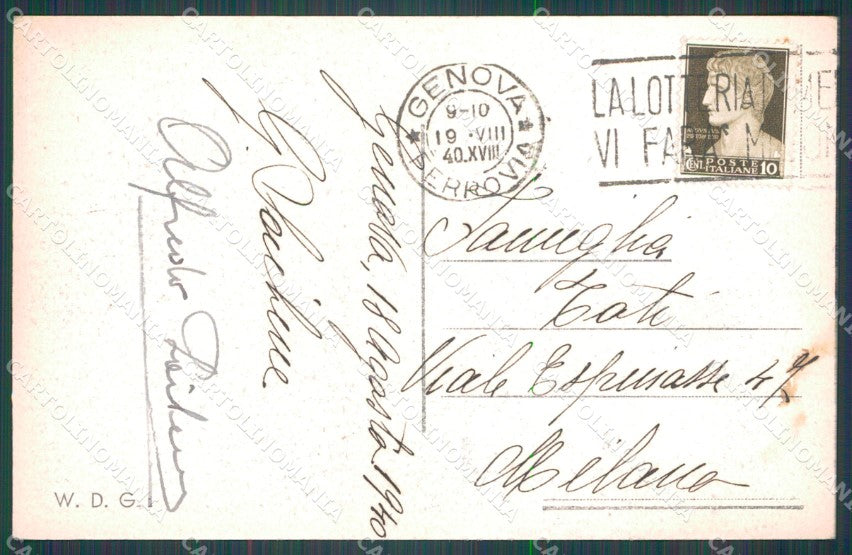 GENOVA
9-10
19 · VIII
40.XVIII
FERROVIA
LA LOTTERIA
VI FA
POSTE
ITALIANE
CENT. 10
Famiglia
Tati
Viale Espinasse 47
Milano
Genova, 18 Agosto 1940
Alfredo
W. D. G.
CARTOLINOMANIA